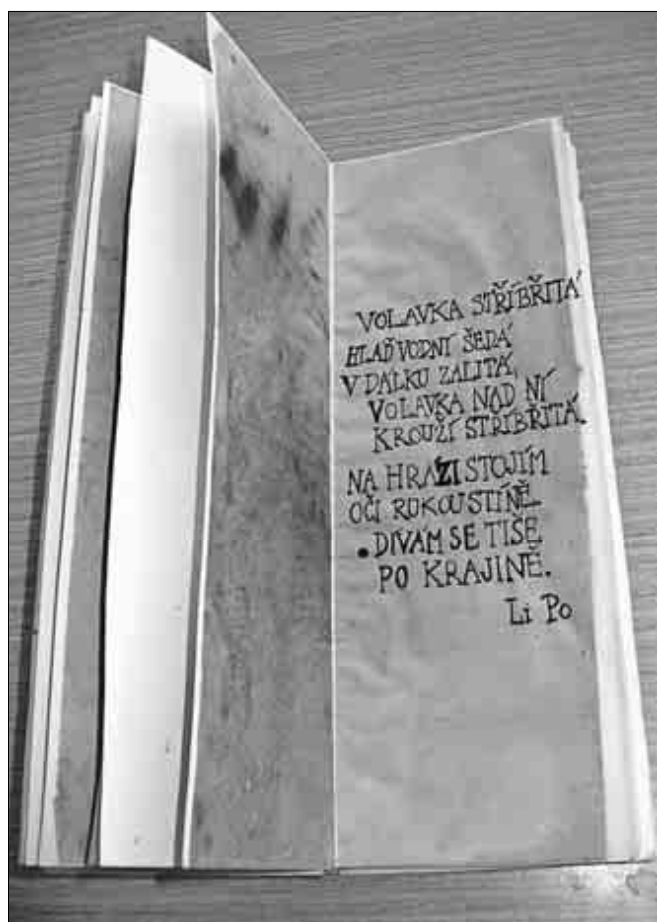 VOLAVKA STŘÍBŘITÁ
HLAĎ VODNÍ ŠEDÁ
V DÁLKU ZALITÁ,
VOLAVKA NAD NÍ
KROUŽÍ STŘÍBŘITÁ.
NA HRÁZI STOJÍM
OČI RUKOU STÍNĚ
DÍVÁM SE TIŠE
PO KRAJINĚ.
Li Po